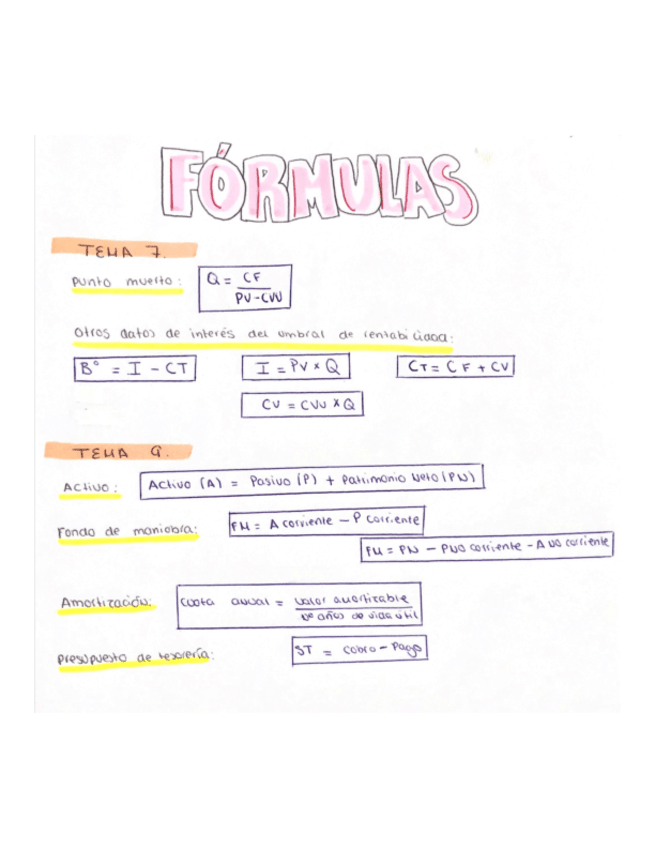 FÓRMULAS
TEMA 7.
Punto muerto: Q = CF / PV-CVU
Otros datos de interés del umbral de rentabilidad:
Bº = I - CT
I = PV x Q
CT = CF + CV
CV = CVU x Q
TEMA 9.
Activo: Activo (A) = Pasivo (P) + Patrimonio Neto (PN)
Fondo de maniobra: FM = A corriente - P corriente
FM = PN - P no corriente - A no corriente
Amortización: Cuota anual = valor amortizable / nº años de vida útil
Presupuesto de tesorería: ST = cobro - Pago